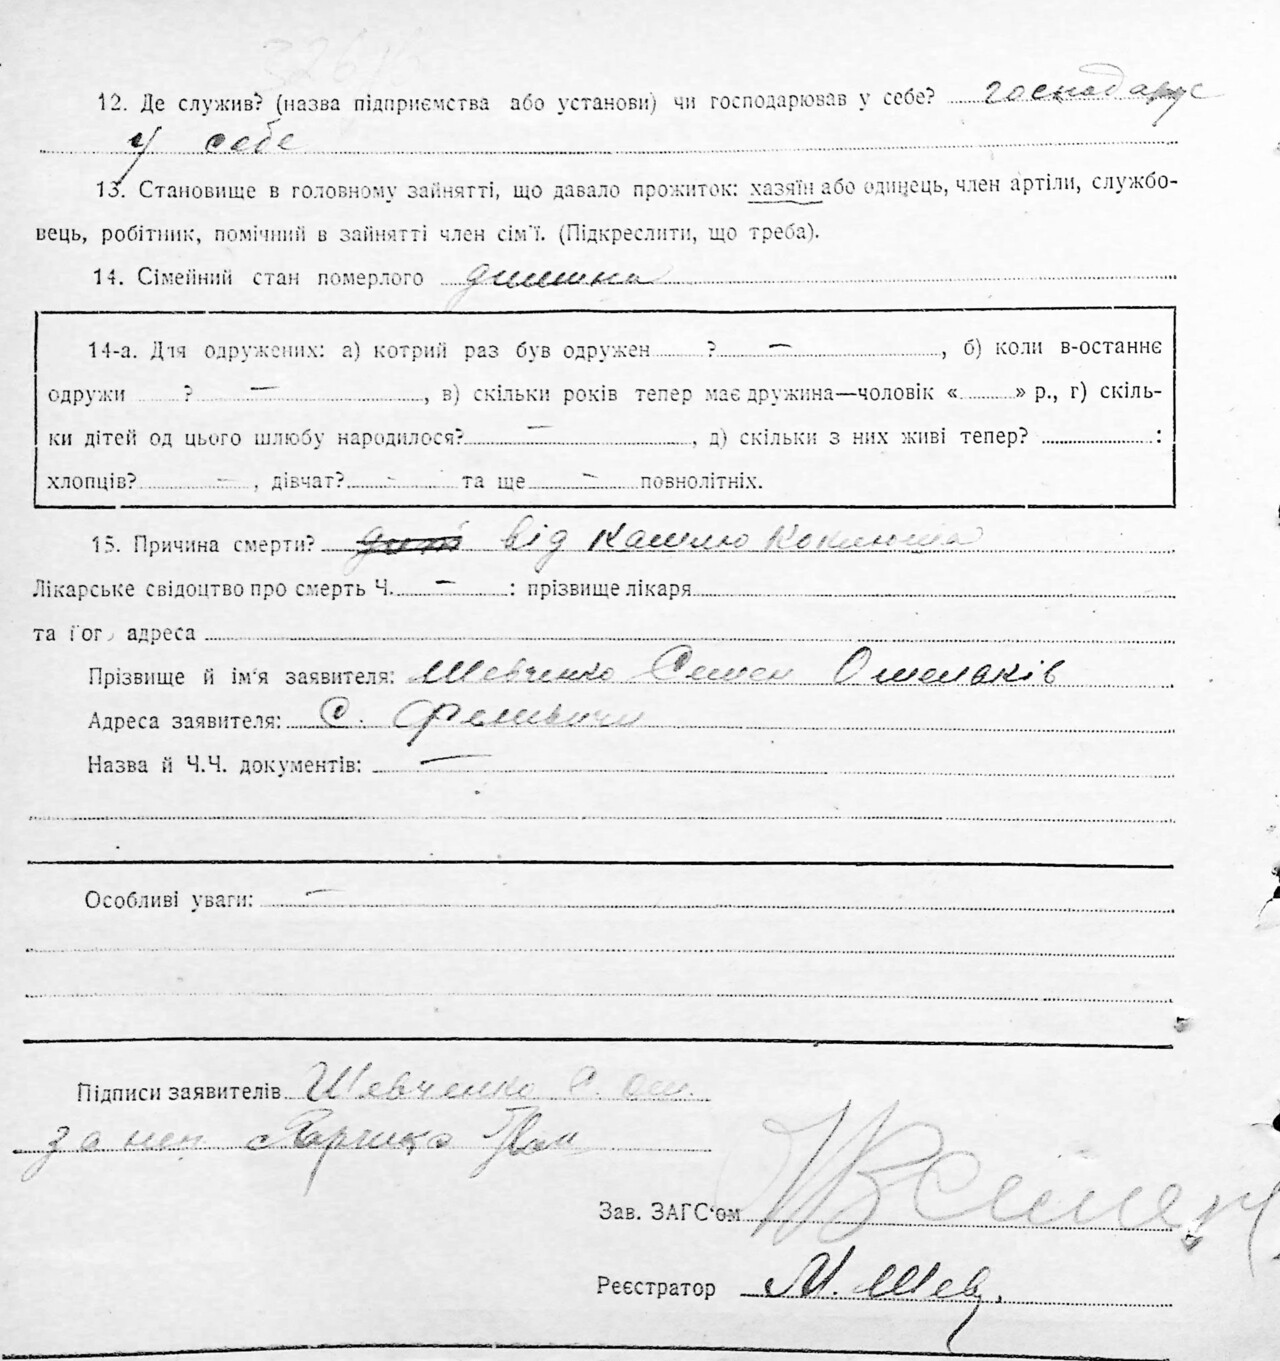 12. Де служив? (назва підприємства або установи) чи господарював у себе? господарує
у себе
13. Становище в головному зайнятті, що давало прожиток: хазяїн або одинець, член артіли, службо-
вець, робітник, помічний в зайнятті член сім'ї. (Підкреслити, що треба).
14. Сімейний стан померлого
14-а. Для одружених: а) котрий раз був одружен ? — , б) коли в-останнє
одружи ? — , в) скільки років тепер має дружина—чоловік « » р., г) скіль-
ки дітей од цього шлюбу народилося? — , д) скільки з них живі тепер? :
хлопців? — , дівчат? - та ще — повнолітніх.
15. Причина смерти? від кашлю
Лікарське свідоцтво про смерть Ч. — : прізвище лікаря
та його адреса
Прізвище й ім'я заявителя: Шевченко Семен Омельків
Адреса заявителя: С.
Назва й Ч.Ч. документів: —
Особливі уваги: —
Підписи заявителів Шевченко С. Ом.
за неп
Зав. ЗАГС'ом
Реєстратор М. Шев